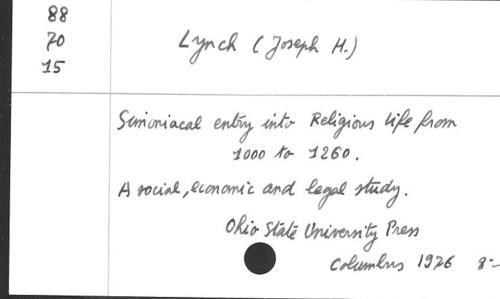 88
70
15
Lynch (Joseph H.)
Simoniacal entry into Religious life from
1000 to 1260.
A social, economic and legal study.
Ohio State University Press
Columbus 1976 8:-